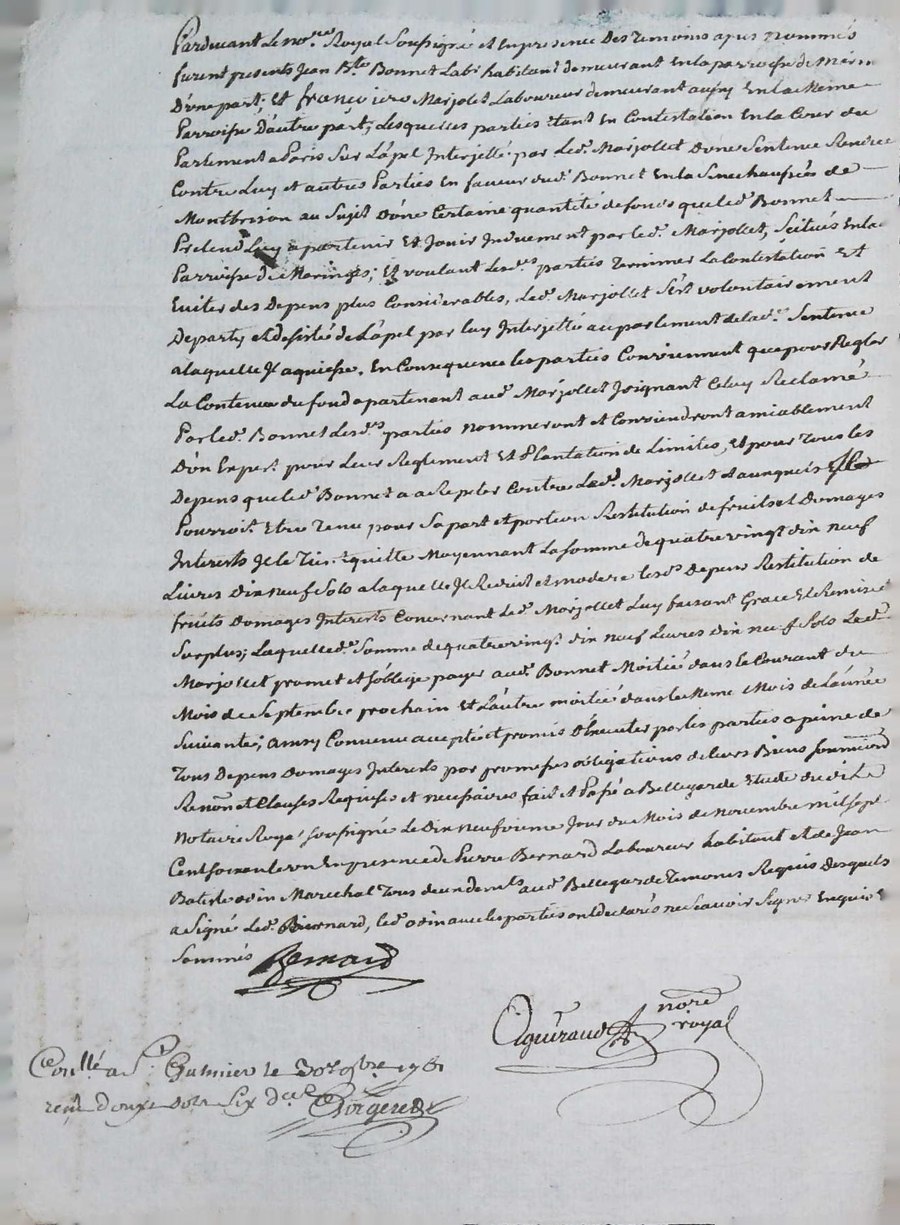 Pardevant Le no.re Royal Soussigné et En presence Des temoins apres nommés
furent presents Jean B.te Bonnet Lab.r habitant demeurant En la parroisse de
D'une part; Et françois Marjolet Laboureur demeurant aussy En la Meme
Parroisse D'autre part; Lesquelles parties Etant En Contestation En la Cour du
Parlement a Paris Sur L'apel Interjetté par Led. Marjollet D'une Sentence Rendue
Contre Luy et autres Parties En faveur dud. Bonnet En la Senechaussée de
Montbrison au Sujet D'une Certaine quantité de fonds que led. Bonnet
Pretend Luy apartenir Et Jouir Induement par led. Marjollet, Scitués En la
Parroisse de Maringes; Et voulant Lesd.s parties Terminer La Contestation Et
Eviter des Depens plus Considerables, Led. Marjollet S'est volontairement
Departy et desisté de L'apel par luy Interjetté au parlement de lad.e Sentence
a laquelle Il aquiesse. En Consequence les parties Conviennent que pour Regler
La Contenue du fond apartenant aud. Marjollet Joignant Celuy Reclamé
Par led. Bonnet Lesd.s parties nommeront et Conviendront amiablement
D'un Expert pour Leur Reglement Et Plantation de Limites, Et pour Tous les
Depens que led. Bonnet a a Repeter Contre Led. Marjollet et auxquels Il
Pourroit Etre Tenu pour Sa part et portion Restitution de fruits et Domages
Interests Il le Tient quitte Moyennant La Somme de quatre vingt dix neuf
Livres Dix neuf Sols a laquelle Il Reduit et modere lesd. Depens Restitution de
fruits Domages Interests Concernant Led. Marjollet Luy faisant Grace Et Remise
Surplus; Laquelle d. Somme de quatre vingt dix neuf Livres dix neuf Sols Led.
Marjollet promet et s'oblige payer aud. Bonnet Moitié dans le Courant du
Mois de Septembre prochain Et L'autre moitié dans le Meme Mois de L'année
Suivante; ainsy Convenu accepté et promis D'executer par les parties a peine de
Tous Depens Domages Interests par promesses obligations de leurs Biens
Renon.on et Clauses Requises et necessaires fait et Passé a Bellegarde Etude dudit
Notaire Royal Soussigné Le Dix neufvieme Jour du Mois de novembre mil Sept
Cent soixante un En presence de Pierre Bernard Laboureur habitant et de Jean
Batiste odin Marechal Tous deux dem.ts aud. Bellegarde Temoins Requis Desquels
a Signé Led. Bernard, led. odin avec les parties ont declarés ne Scavoir Signer Enquis Et
Sommés Bernard
nore
royal
a St. Galmier le 9bre 1761
reçu douze sols six d.